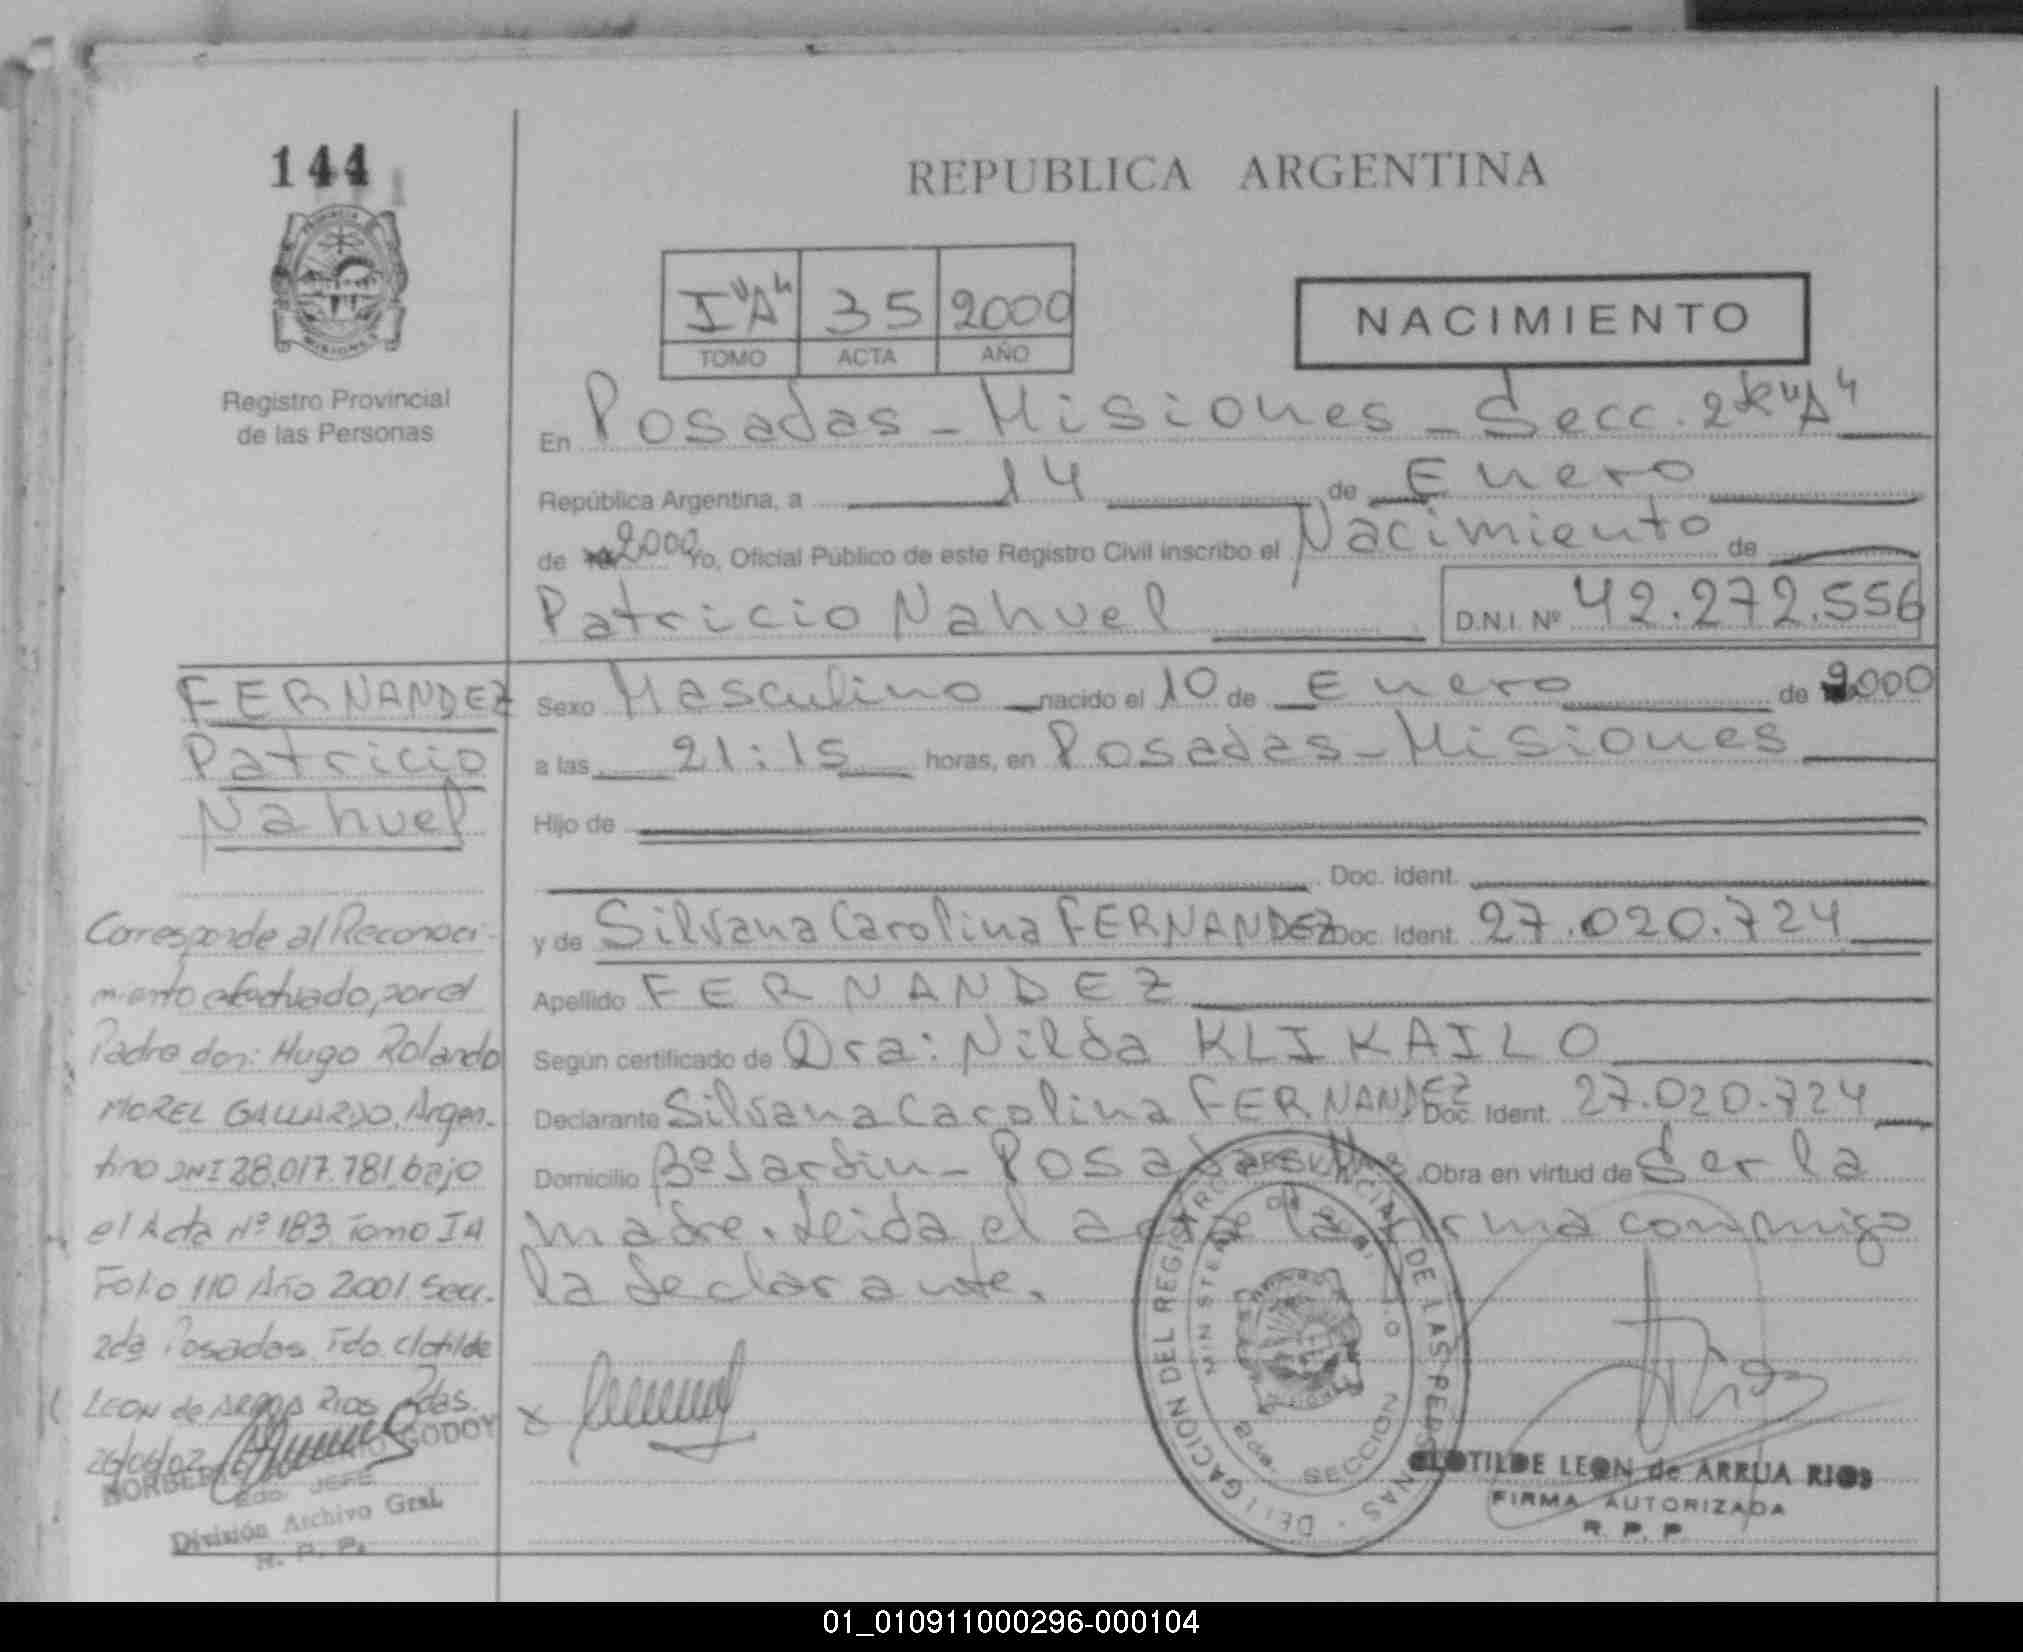 144
REPUBLICA ARGENTINA
I "A" 35 2000
TOMO ACTA AÑO
NACIMIENTO
Registro Provincial
de las Personas
En Posadas - Misiones - Secc. 2da "A"
República Argentina, a 14 de Enero
de 2000 Yo, Oficial Público de este Registro Civil inscribo el Nacimiento de
Patricio Nahuel D.N.I. Nº 42.272.556
FERNANDEZ
Patricio
Nahuel
Sexo Masculino nacido el 10 de Enero de 2000
a las 21:15 horas, en Posadas - Misiones
Hijo de
Doc. Ident.
y de Silvana Carolina FERNANDEZ Doc. Ident. 27.020.724
Apellido FERNANDEZ
Según certificado de Dra: Nilda KLIKAILO
Declarante Silvana Carolina FERNANDEZ Doc. Ident. 27.020.724
Domicilio Bº Jardin - Posadas Obra en virtud de Ser la
madre. Leida el acta la firma conmigo
la declarante.
Corresponde al Reconoci-
miento efectuado, por el
Padre don: Hugo Rolando
MOREL GALLARDO, Argen-
tino DNI 28.017.781, bajo
el Acta Nº 183 Tomo IA
Folio 110 Año 2001 Secc.
2da Posadas Fdo. Clotilde
LEON de ARRUA Rios Pdas.
26/06/02
GODOY
JEFE
División Archivo Gral.
R. P. P.
DELEGACION DEL REGISTRO PROVINCIAL DE LAS PERSONAS
MINISTERIO DE
SECCION
CLOTILDE LEON de ARRUA RIOS
FIRMA AUTORIZADA
R. P. P.
01_010911000296-000104